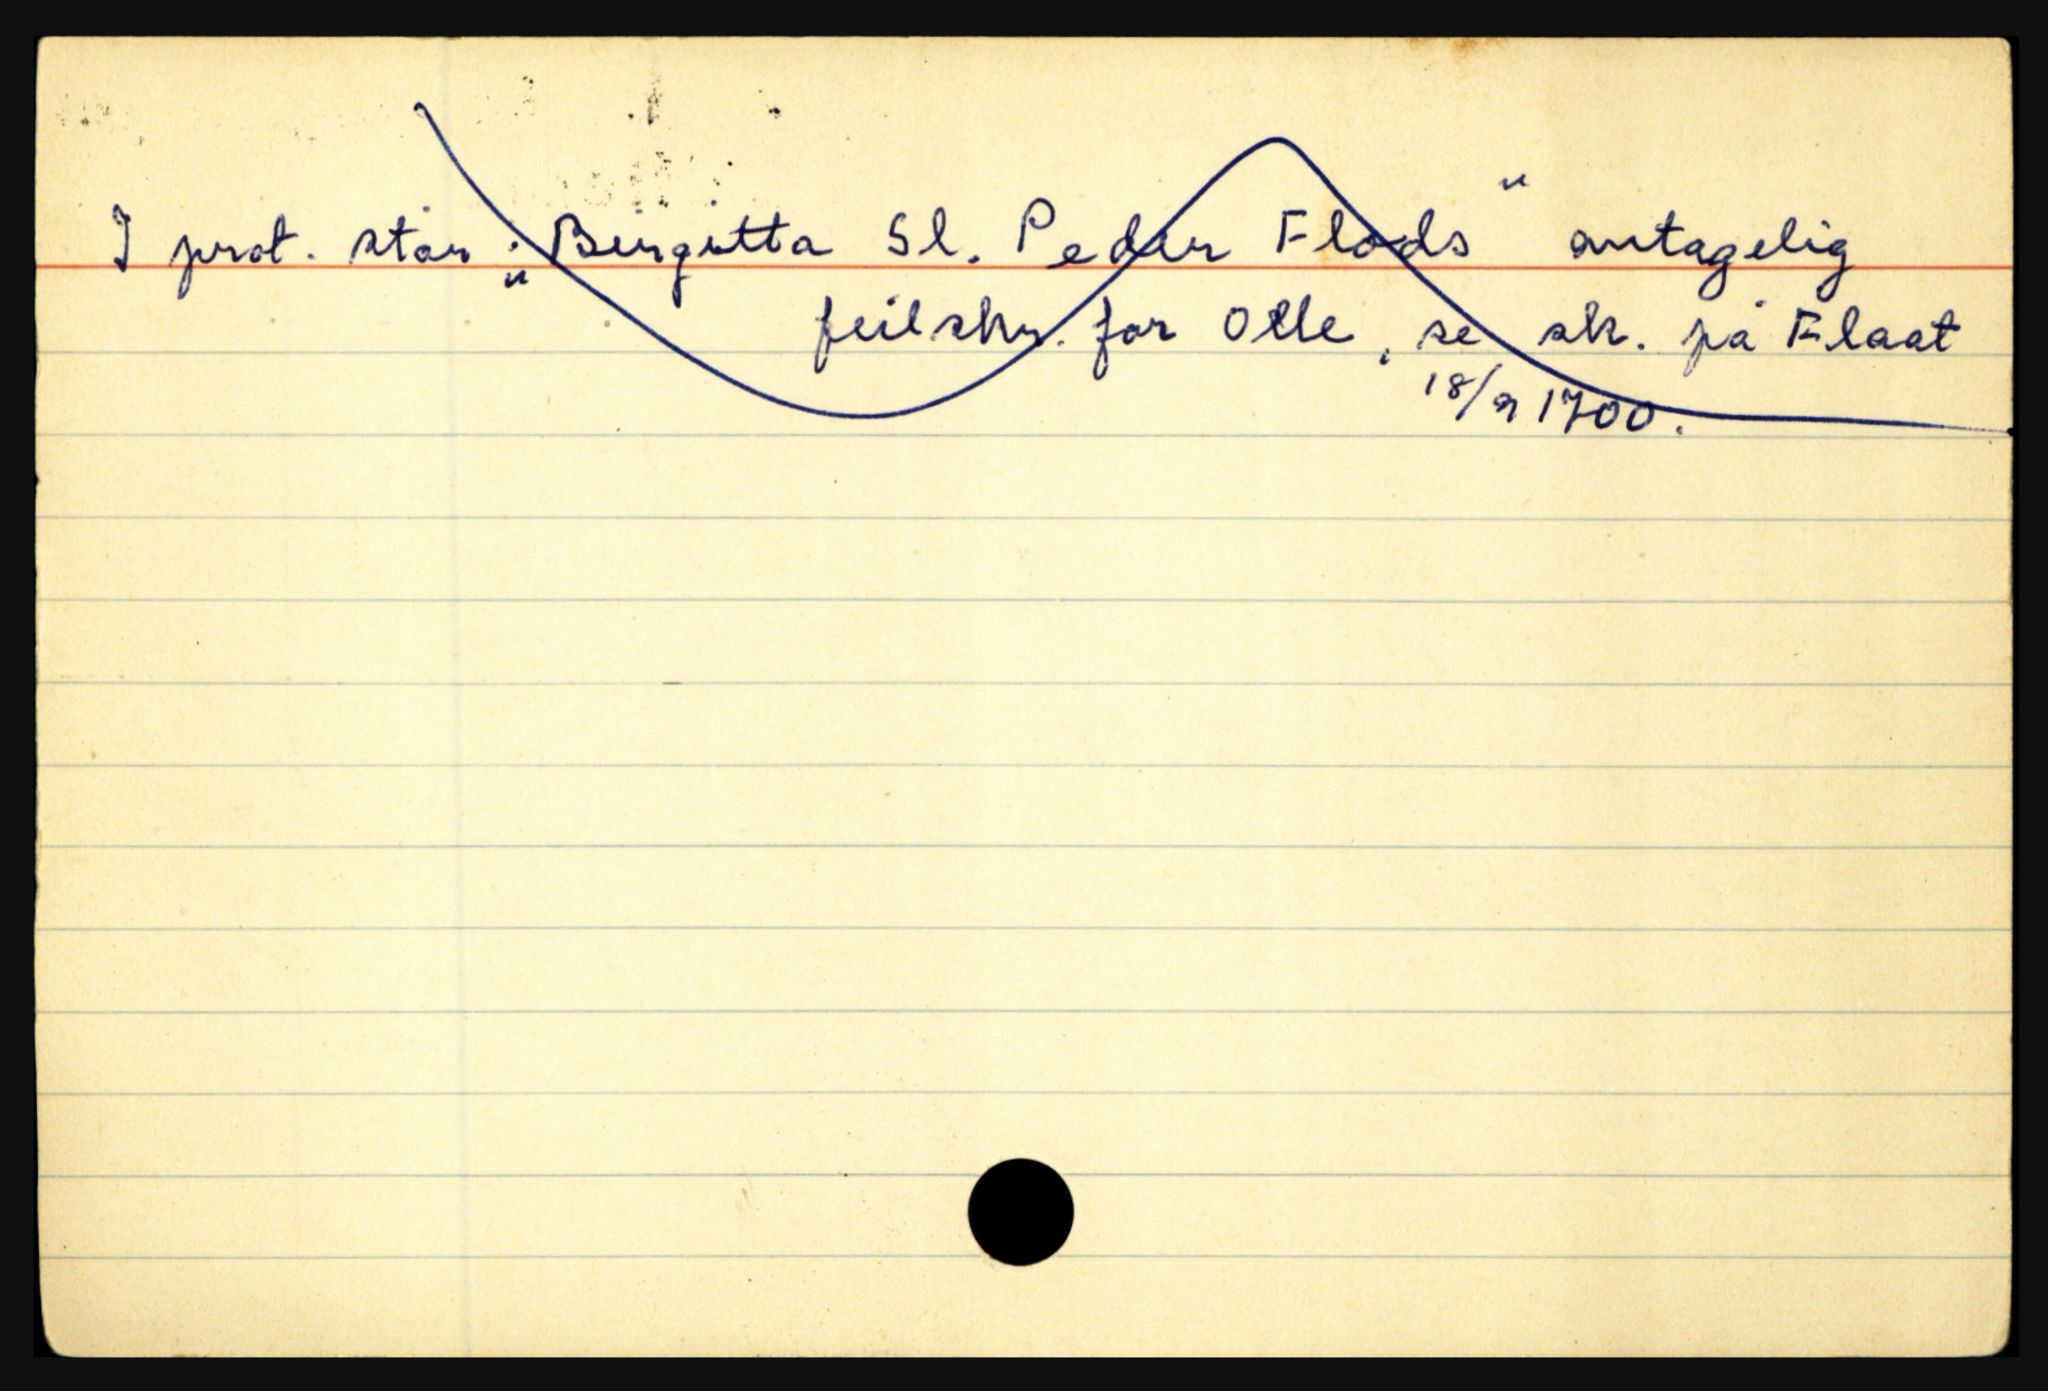 I prot. står: „Birgitta Sl. Peder Flods" antagelig
feilskr. for Olle, se sk. på Flaat
18/9 1700.